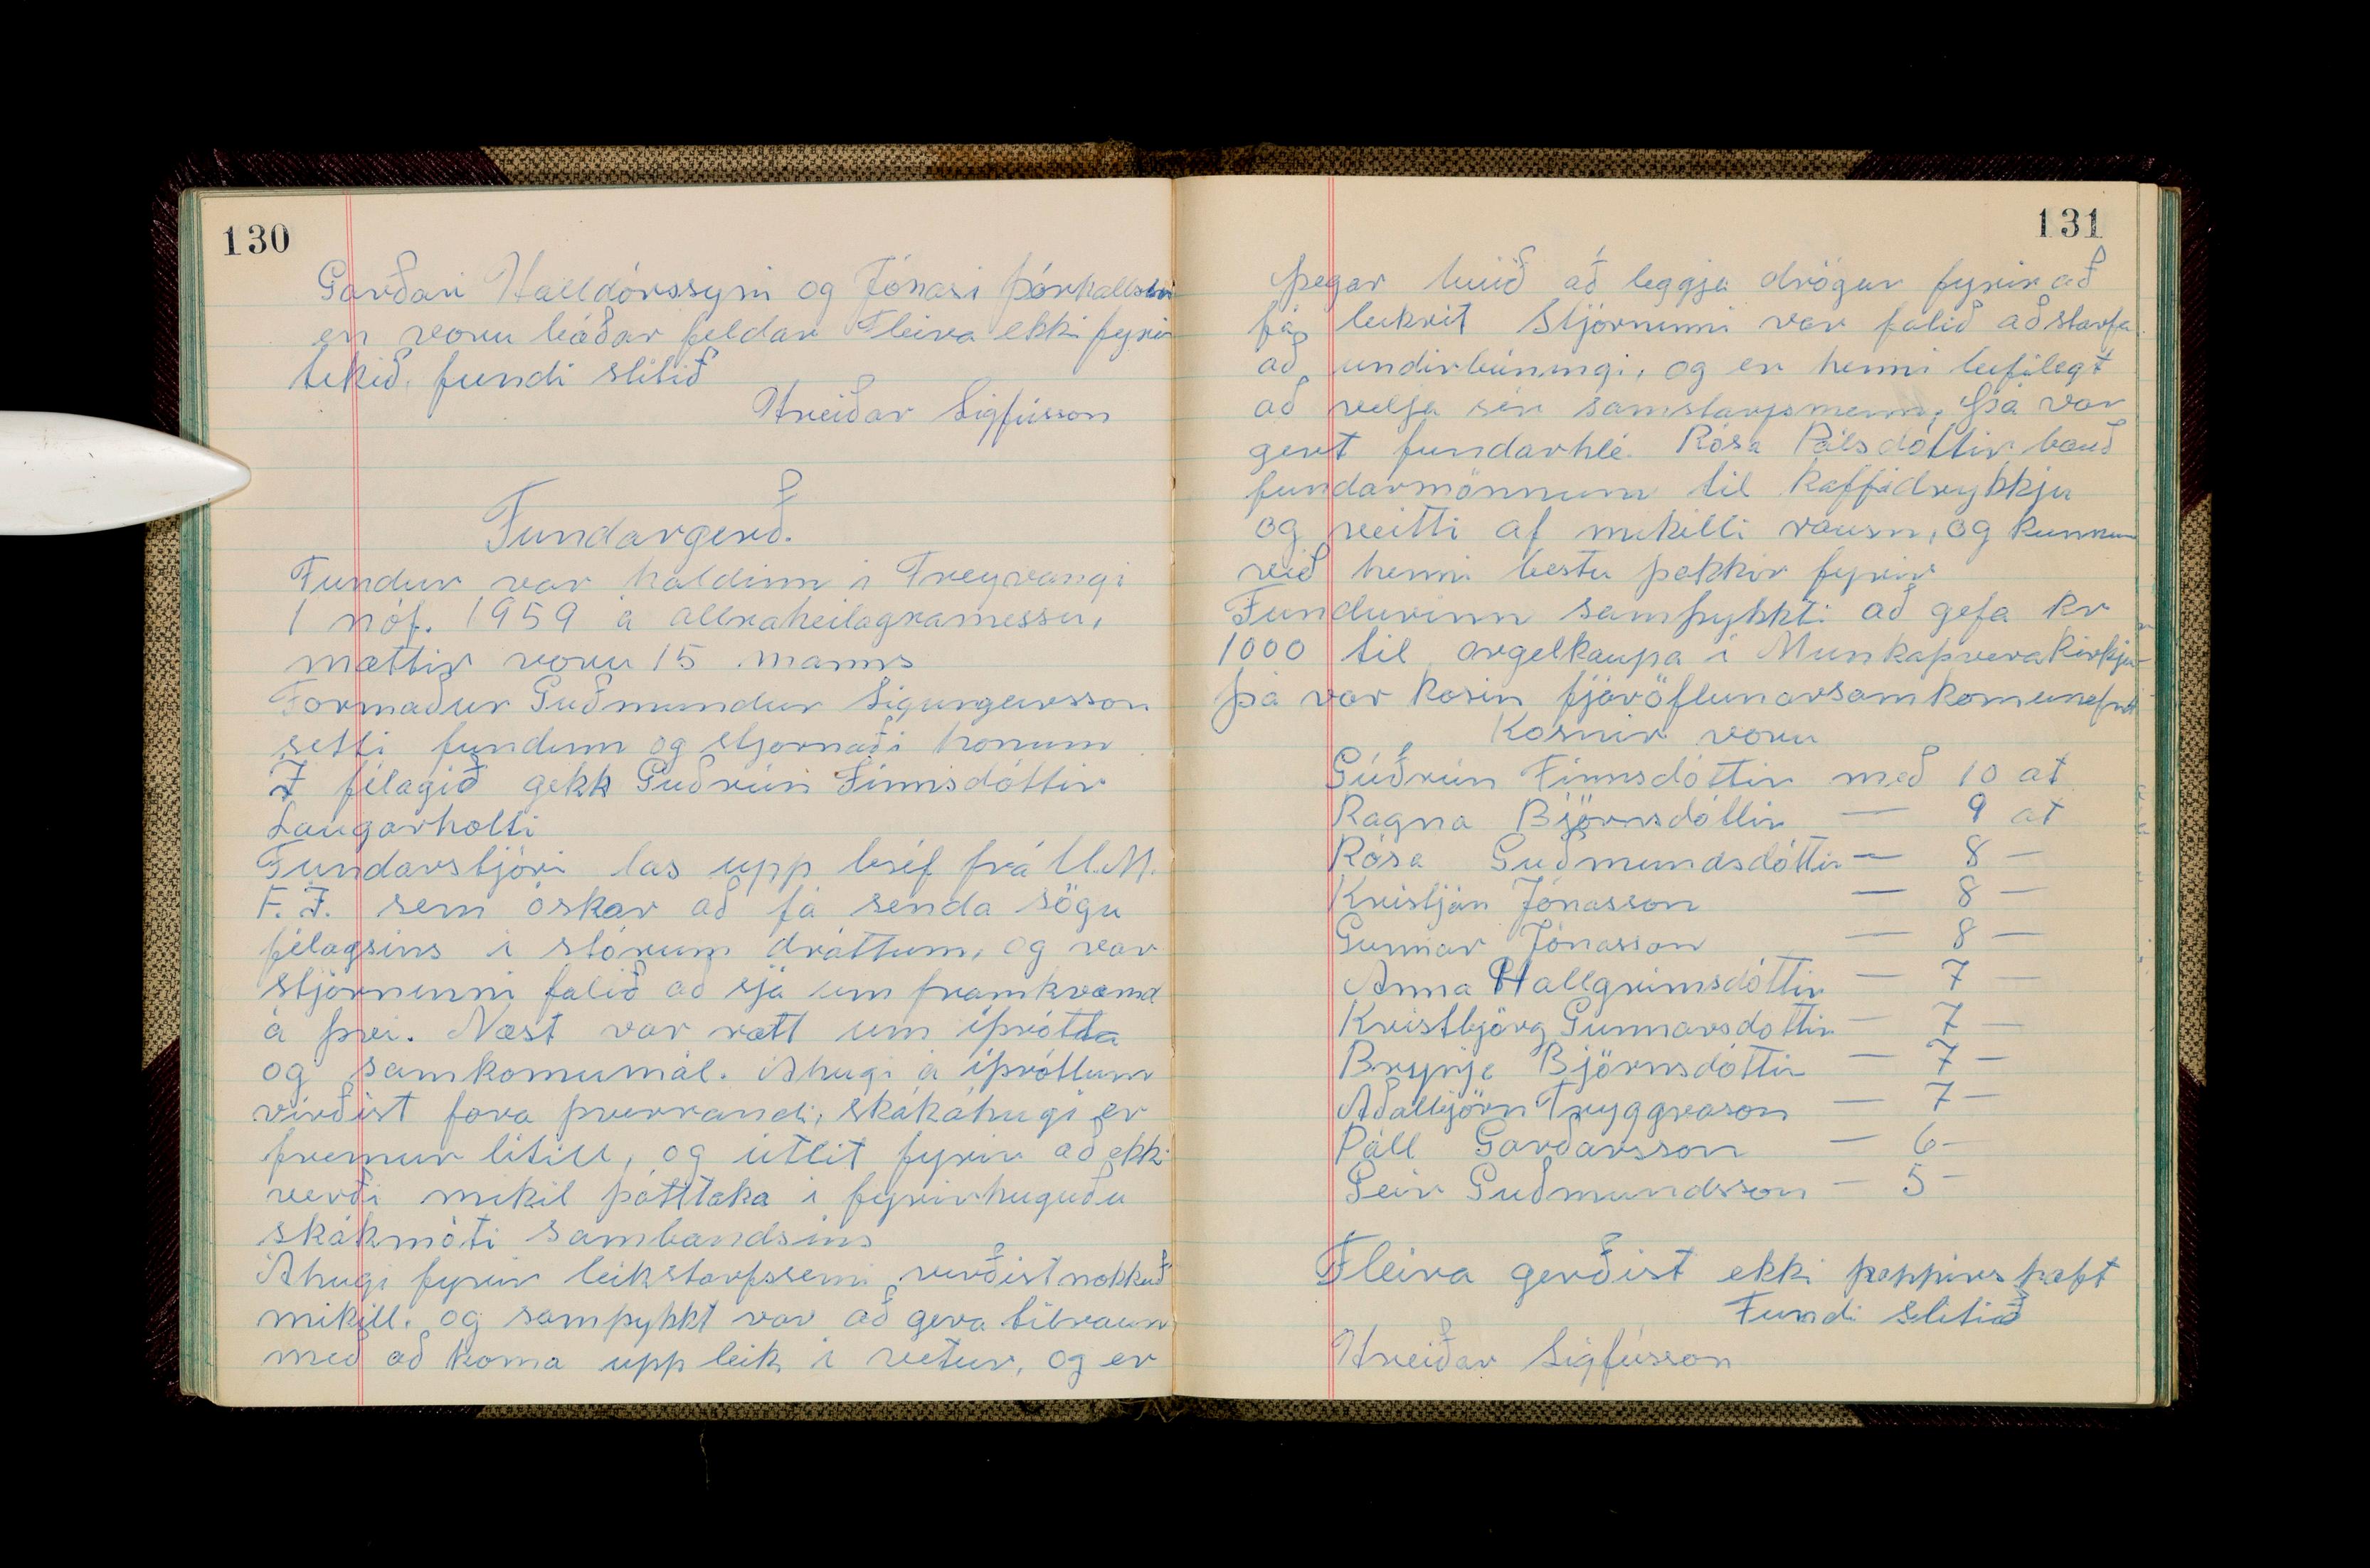 130
Garðari Halldórssyni og Jónasi Þórhallssni
en voru báðar feldar Fleira ekki fyrir
tekið. fundi slitið
Hreiðar Sigfússon
Fundargerð.
Fundur var haldinn i Freyvangi
1 nóf. 1959 á allraheilagramessu,
mættir voru 15 manns
Formaður Guðmundur Sigurgeirsson
setti fundinn og stjornaði honum
Í félagið gekk Guðrún Finnsdóttir
Laugarholti
Fundarstjóri las upp bréf frá U.M.
F.Í. sem óskar að fá senda sögu
félagsins i stórum dráttum, og var
stjórnunni falið að sjá um framkvæmd
á því. Næst var rætt um íþrótta
og samkomumál. Áhugi á íþróttum
virðist fara þverrandi, skákáhugi er
fremur lítill, og útlit fyrir að ekki
verði mikil þátttaka i fyrirhuguðu
skákmóti sambandsins
Áhugi fyrir leikstarfssemi virðist nokkuð
mikill. og samþykkt var að gera tilraun
með að koma upp leik i vetur, og er
131
þegar búið að leggja drögur fyrir að
fá leikrit Stjórnunni var falið að starfa
að undirbúningi, og er henni leifilegt
að velja sér samstarfsmenn, þá var
gert fundarhlé. Rósa Pálsdóttir bauð
fundarmönnum til kaffidrykkju
og veitti af mikilli rausn, og kunnum
við henni bestu þakkir fyrir
Fundurinn samþykkti að gefa kr
1000 til orgelkaupa i Munkaþverakirkju
þá var kosin fjáröflunarsamkomunefnd
Kosnir voru
Gúðrún Finnsdóttir með 10 at
Ragna Björnsdóttir — 9 at
Rósa Guðmundsdóttir — 8 —
Kristján Jónasson — 8 —
Gunnar Jónasson — 8 —
Anna Hallgrímsdóttir — 7 —
Kristbjörg Gunnarsdottir — 7 —
Brynja Björnsdóttir — 7 —
Aðalbjörn Tryggvason — 7 —
Páll Garðarsson — 6 —
Geir Guðmundsson — 5 —
Fleira gerðist ekki pappírs hæft
Fundi slitið
Hreiðar Sigfússon